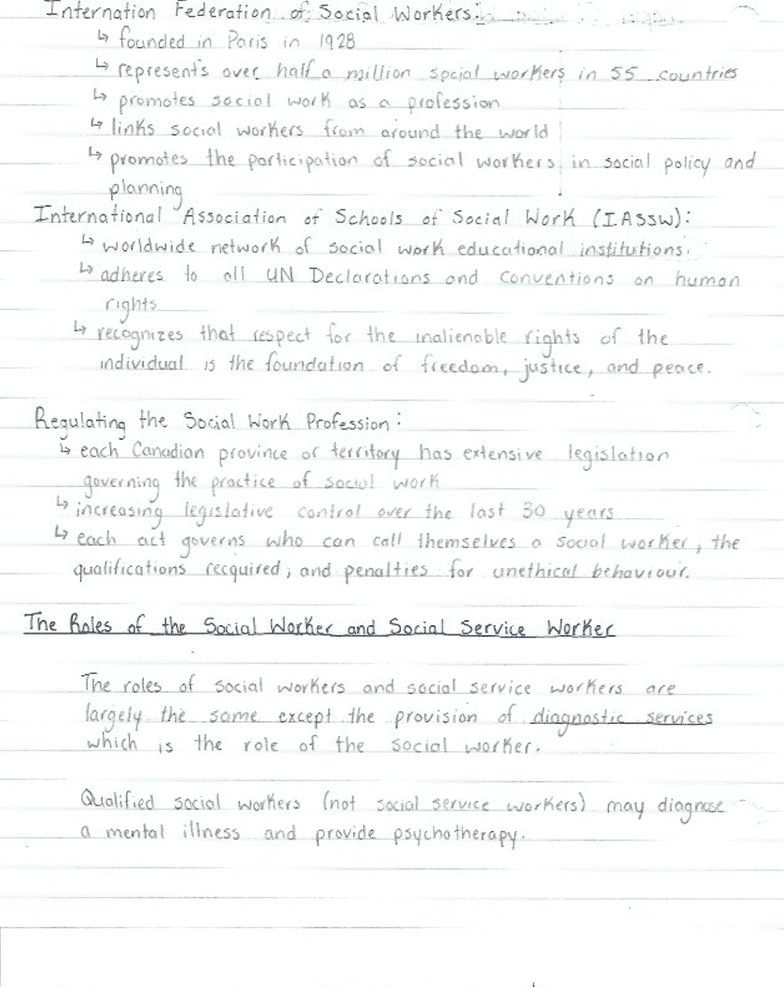 Internation Federation of Social Workers:
↳ founded in Paris in 1928
↳ represents over half a million social workers in 55 countries
↳ promotes social work as a profession
↳ links social workers from around the world
↳ promotes the participation of social workers in social policy and
planning
International Association of Schools of Social Work (IASSW):
↳ worldwide network of social work educational institutions.
↳ adheres to all UN Declarations and Conventions on human
rights
↳ recognizes that respect for the inalienable rights of the
individual is the foundation of freedom, justice, and peace.
Regulating the Social Work Profession:
↳ each Canadian province or territory has extensive legislation
governing the practice of social work
↳ increasing legislative control over the last 30 years
↳ each act governs who can call themselves a social worker, the
qualifications recquired, and penalties for unethical behaviour.
The Roles of the Social Worker and Social Service Worker
The roles of social workers and social service workers are
largely the same except the provision of diagnostic services
which is the role of the social worker.
Qualified social workers (not social service workers) may diagnose
a mental illness and provide psychotherapy.